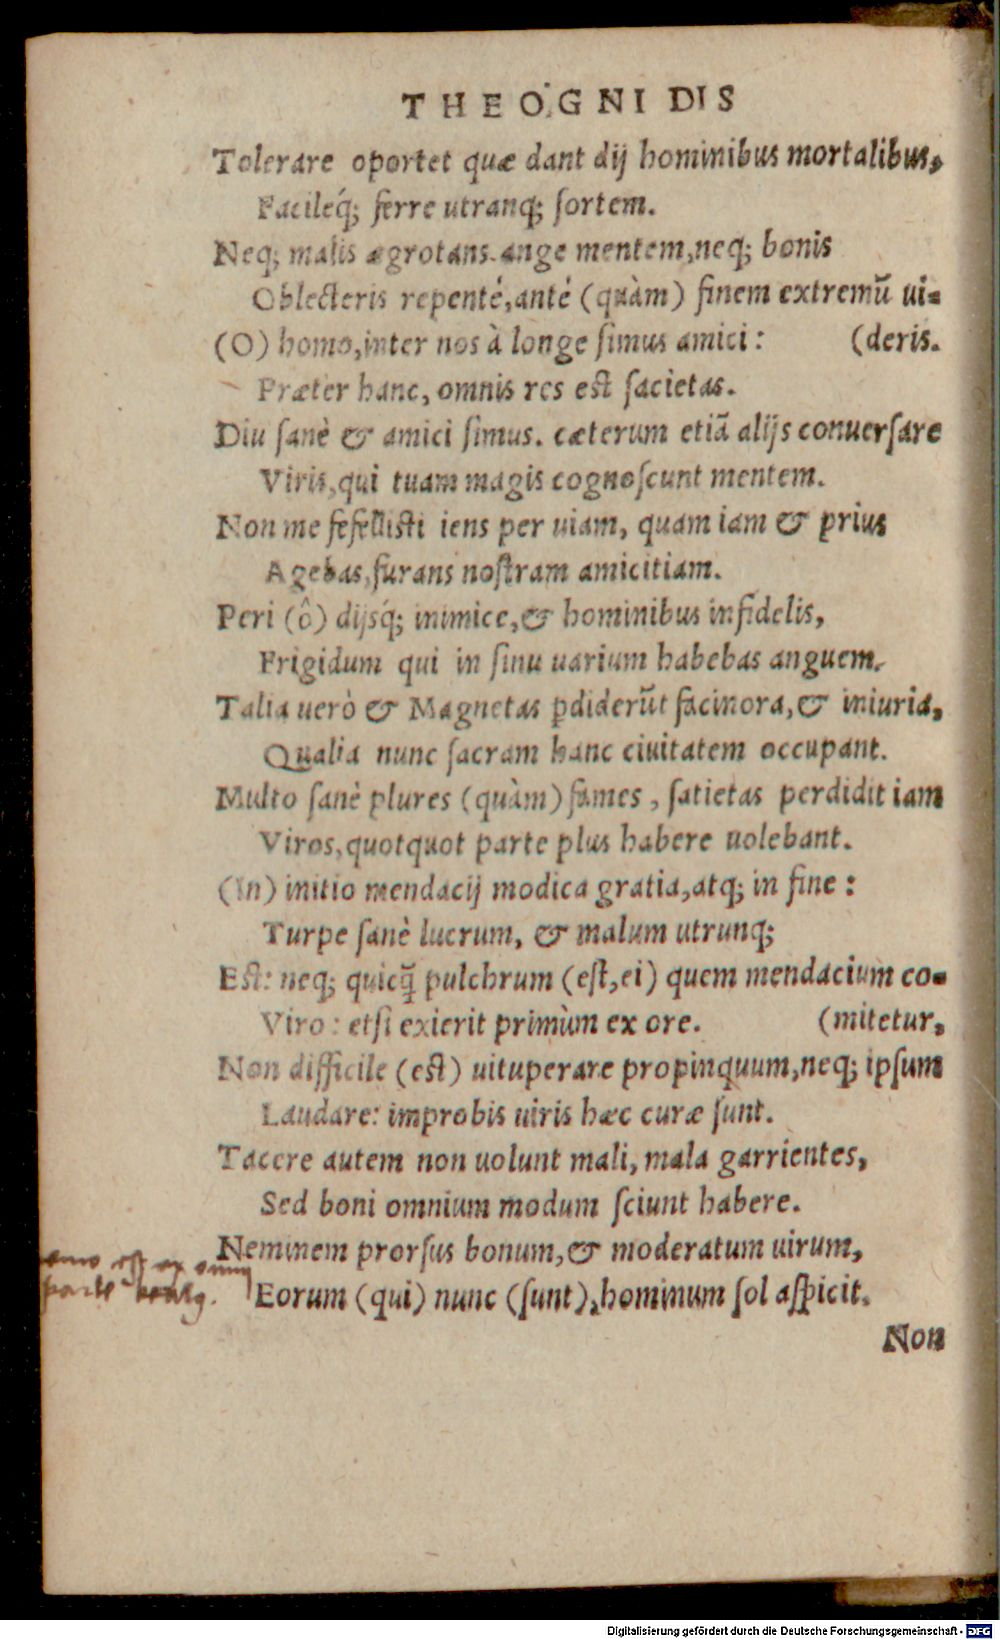 THEOGNIDIS
Tolerare oportet quæ dant dij hominibus mortalibus,
Facileq́; ferre utranq; ſortem.
Neq; malis ægrotans ange mentem, neq; bonis
Oblecteris repenté, anté (quàm) finem extremũ ui-
(O) homo, inter nos à longe ſimus amici: (deris.
Præter hanc, omnis res eſt ſacietas.
Diu ſanè & amici ſimus. cæterum etiã alijs conuerſare
Viris, qui tuam magis cognoſcunt mentem.
Non me fefelliſti iens per uiam, quam iam & prius
Agebas, furans noſtram amicitiam.
Peri (ô) dijsq́; inimice, & hominibus infidelis,
Frigidum qui in ſinu uarium habebas anguem.
Talia uerò & Magnetas ꝑdiderũt facinora, & iniuria,
Qualia nunc ſacram hanc ciuitatem occupant.
Multo ſanè plures (quàm) fames, ſatietas perdidit iam
Viros, quotquot parte plus habere uolebant.
(In) initio mendacij modica gratia, atq; in fine:
Turpe ſanè lucrum, & malum utrunq;
Eſt: neq; quicq̃ pulchrum (eſt, ei) quem mendacium co-
Viro: etſi exierit primùm ex ore. (mitetur,
Non difficile (eſt) uituperare propinquum, neq; ipſum
Laudare: improbis uiris hæc curæ ſunt.
Tacere autem non uolunt mali, mala garrientes,
Sed boni omnium modum ſciunt habere.
Neminem prorſus bonum, & moderatum uirum,
est ex omni
parte
Eorum (qui) nunc (ſunt), hominum ſol aſpicit.
Non
Digitalisierung gefördert durch die Deutsche Forschungsgemeinschaft - DFG